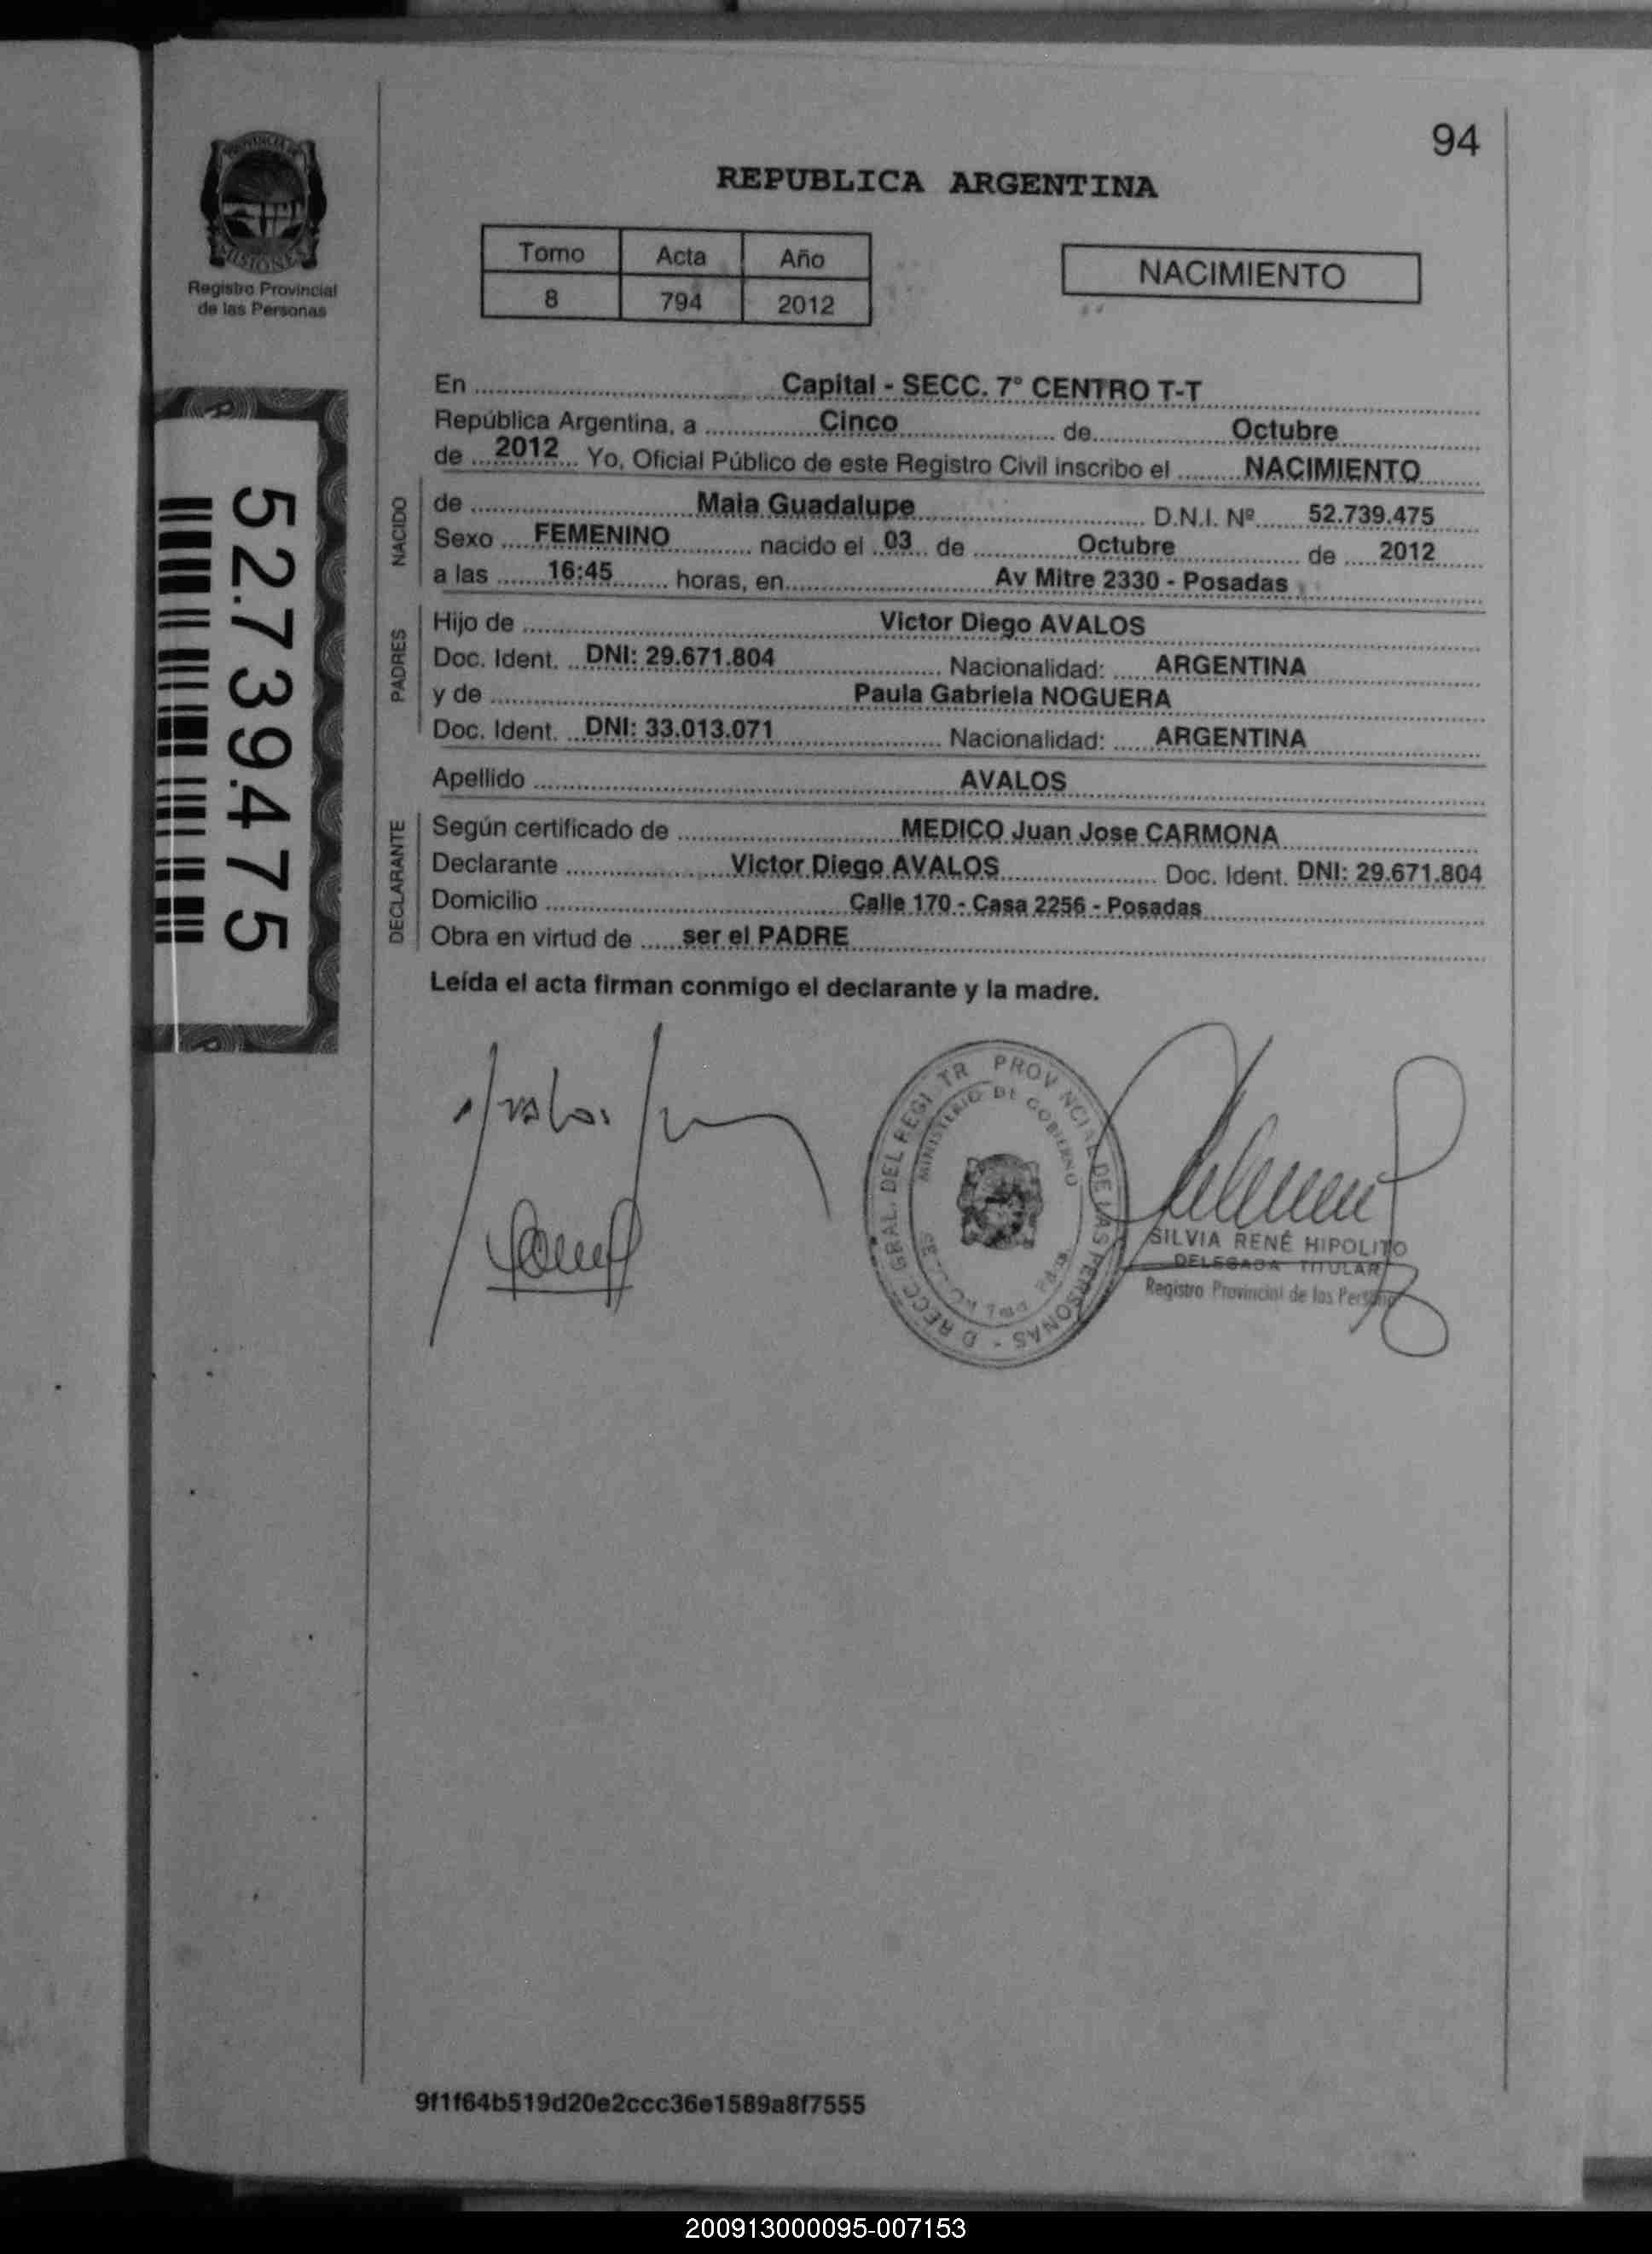 94
REPUBLICA ARGENTINA
PROVINCIA DE
MISIONES
Registro Provincial
de las Personas
Tomo Acta Año
8 794 2012
NACIMIENTO
52.739.475
En Capital - SECC. 7º CENTRO T-T
República Argentina, a Cinco de Octubre
de 2012 Yo, Oficial Público de este Registro Civil inscribo el NACIMIENTO
NACIDO
de Maia Guadalupe D.N.I. Nº 52.739.475
Sexo FEMENINO nacido el 03 de Octubre de 2012
a las 16:45 horas, en Av Mitre 2330 - Posadas
PADRES
Hijo de Victor Diego AVALOS
Doc. Ident. DNI: 29.671.804 Nacionalidad: ARGENTINA
y de Paula Gabriela NOGUERA
Doc. Ident. DNI: 33.013.071 Nacionalidad: ARGENTINA
Apellido AVALOS
DECLARANTE
Según certificado de MEDICO Juan Jose CARMONA
Declarante Victor Diego AVALOS Doc. Ident. DNI: 29.671.804
Domicilio Calle 170 - Casa 2256 - Posadas
Obra en virtud de ser el PADRE
Leída el acta firman conmigo el declarante y la madre.
MINISTERIO DE GOBIERNO
SILVIA RENÉ HIPOLITO
DELEGADA TITULAR
Registro Provincial de las Personas
9f1f64b519d20e2ccc36e1589a8f7555
200913000095-007153